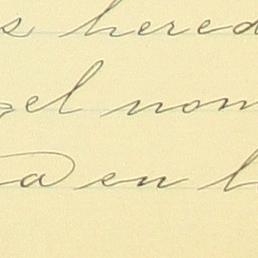 s hered
el nom
a en l